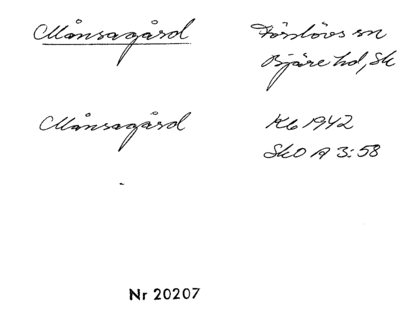 Månsagård
Förslövs sn
Bjäre hd, Sk
Månsagård
Kb 1942
SkO A 3:58
Nr 20207